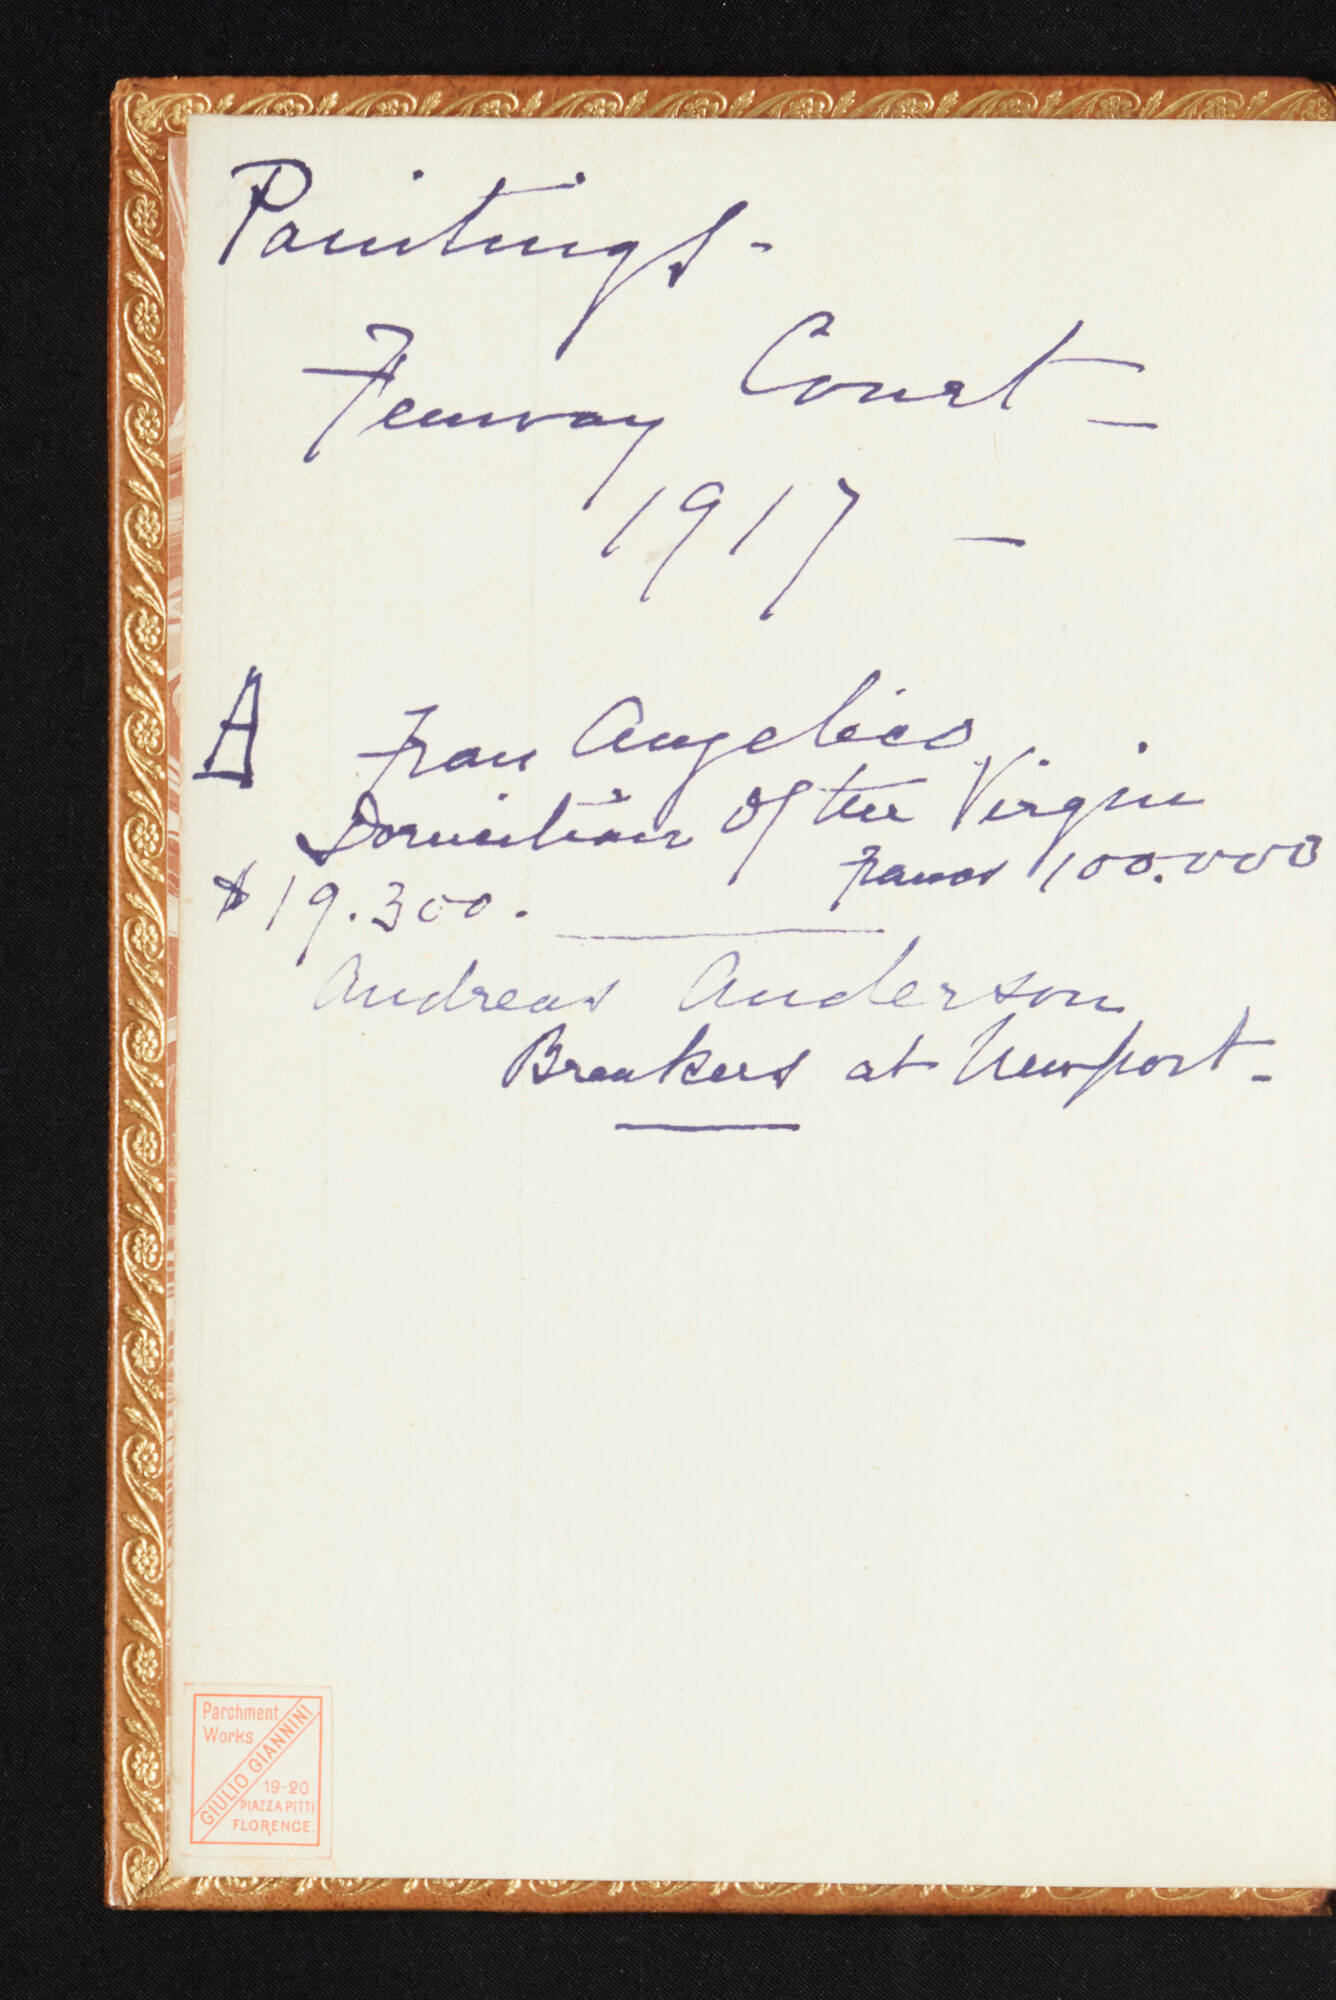 Paintings -
Fenway Court -
1917 -
A
Fran Angelico
Dormition of the Virgin
francs 100.000
$19.300.
Andreas Anderson
Breakers at Newport -
Parchment
Works
GIULIO GIANNINI
19-20
PIAZZA PITTI
FLORENCE.